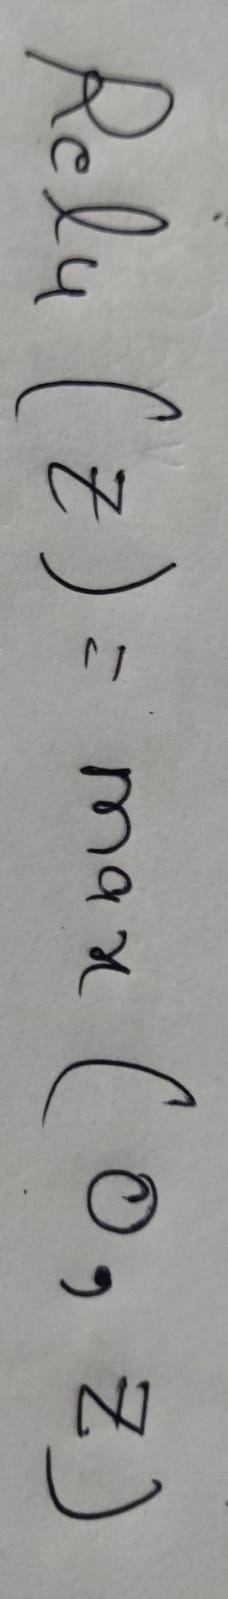 Relu (z) = max (0, z)